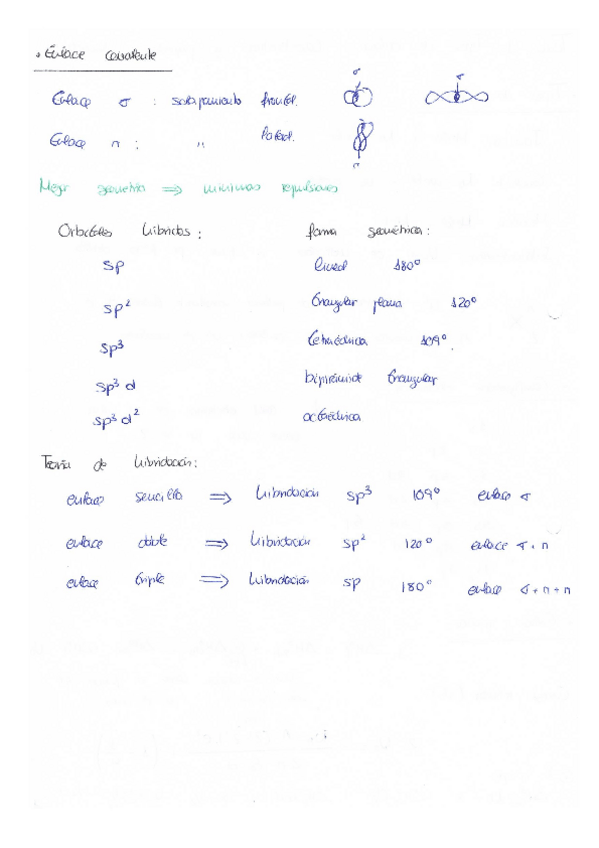 • Enlace covalente
Enlace σ : solapamiento frontal. σ σ
Enlace π : " lateral. π
Mejor geometría ⟹ mínimas repulsiones
Orbitales híbridos : forma geométrica :
sp lineal 180º
sp² triangular plana 120º
sp³ tetraédrica 109º.
sp³ d bipirámide triangular
sp³ d² octaédrica
Teoría de hibridación :
enlace sencillo ⟹ hibridación sp³ 109º enlace σ
enlace doble ⟹ hibridación sp² 120º enlace σ + π
enlace triple ⟹ hibridación sp 180º enlace σ + π + π